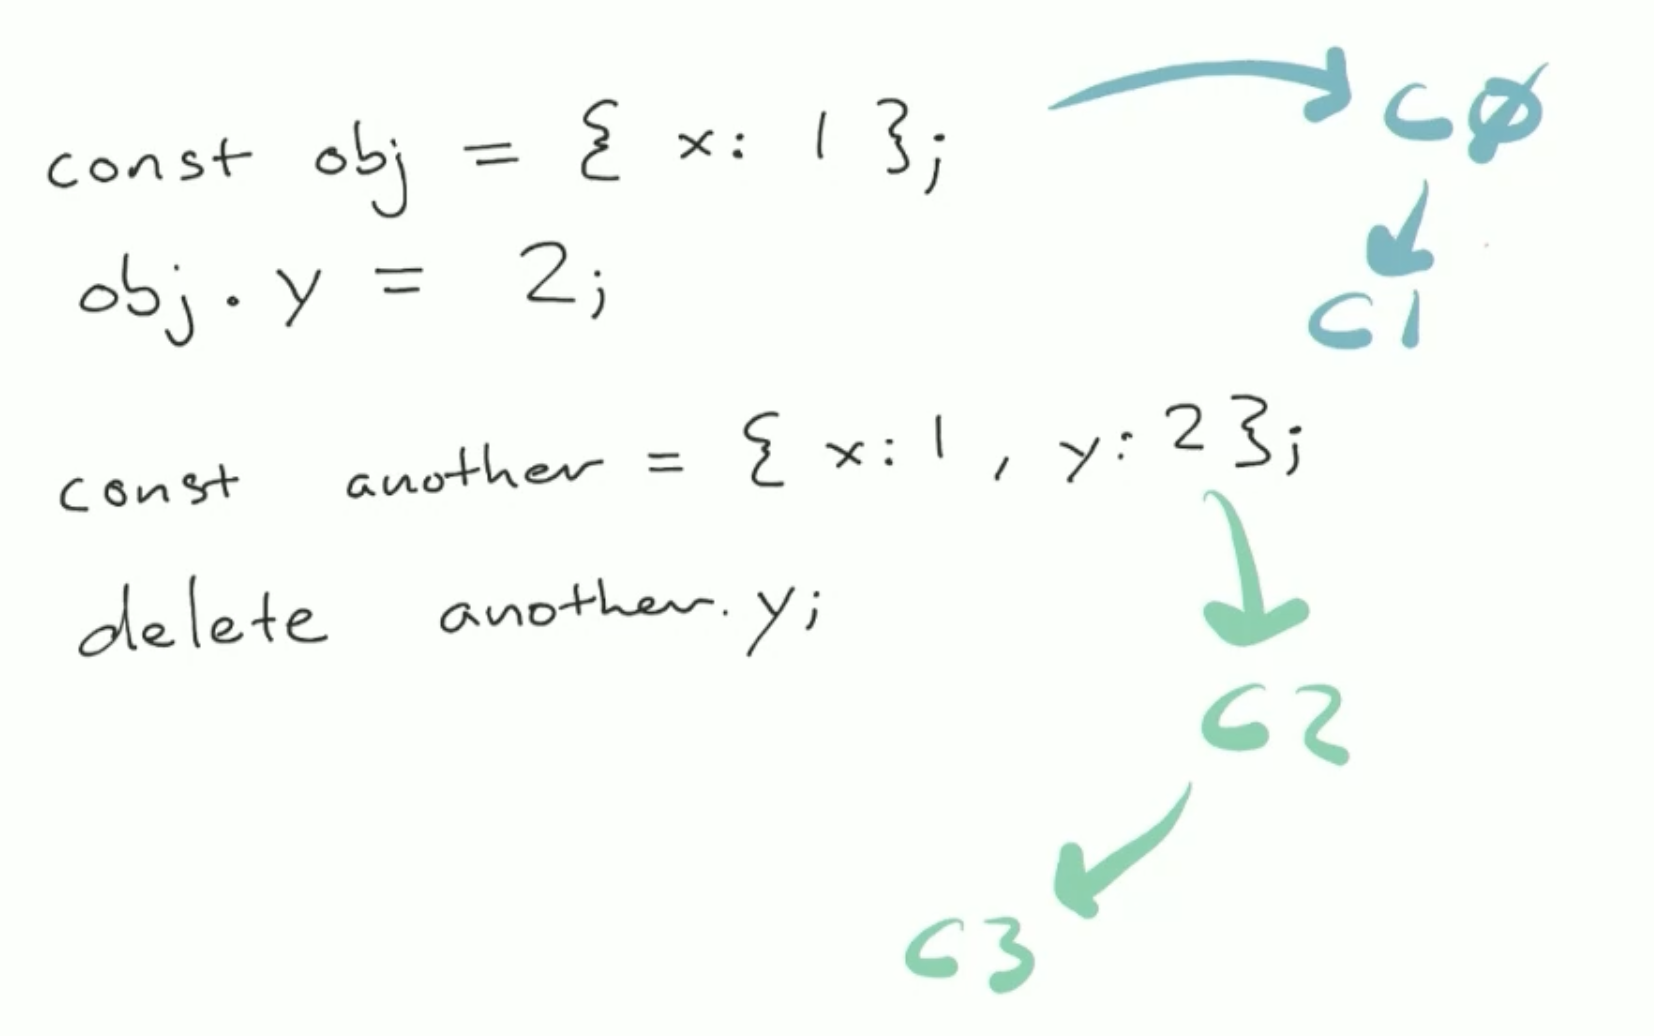 const obj = { x: 1 }; C0
obj.y = 2; C1
const another = { x: 1, y: 2 };
delete another.y;
C2
C3